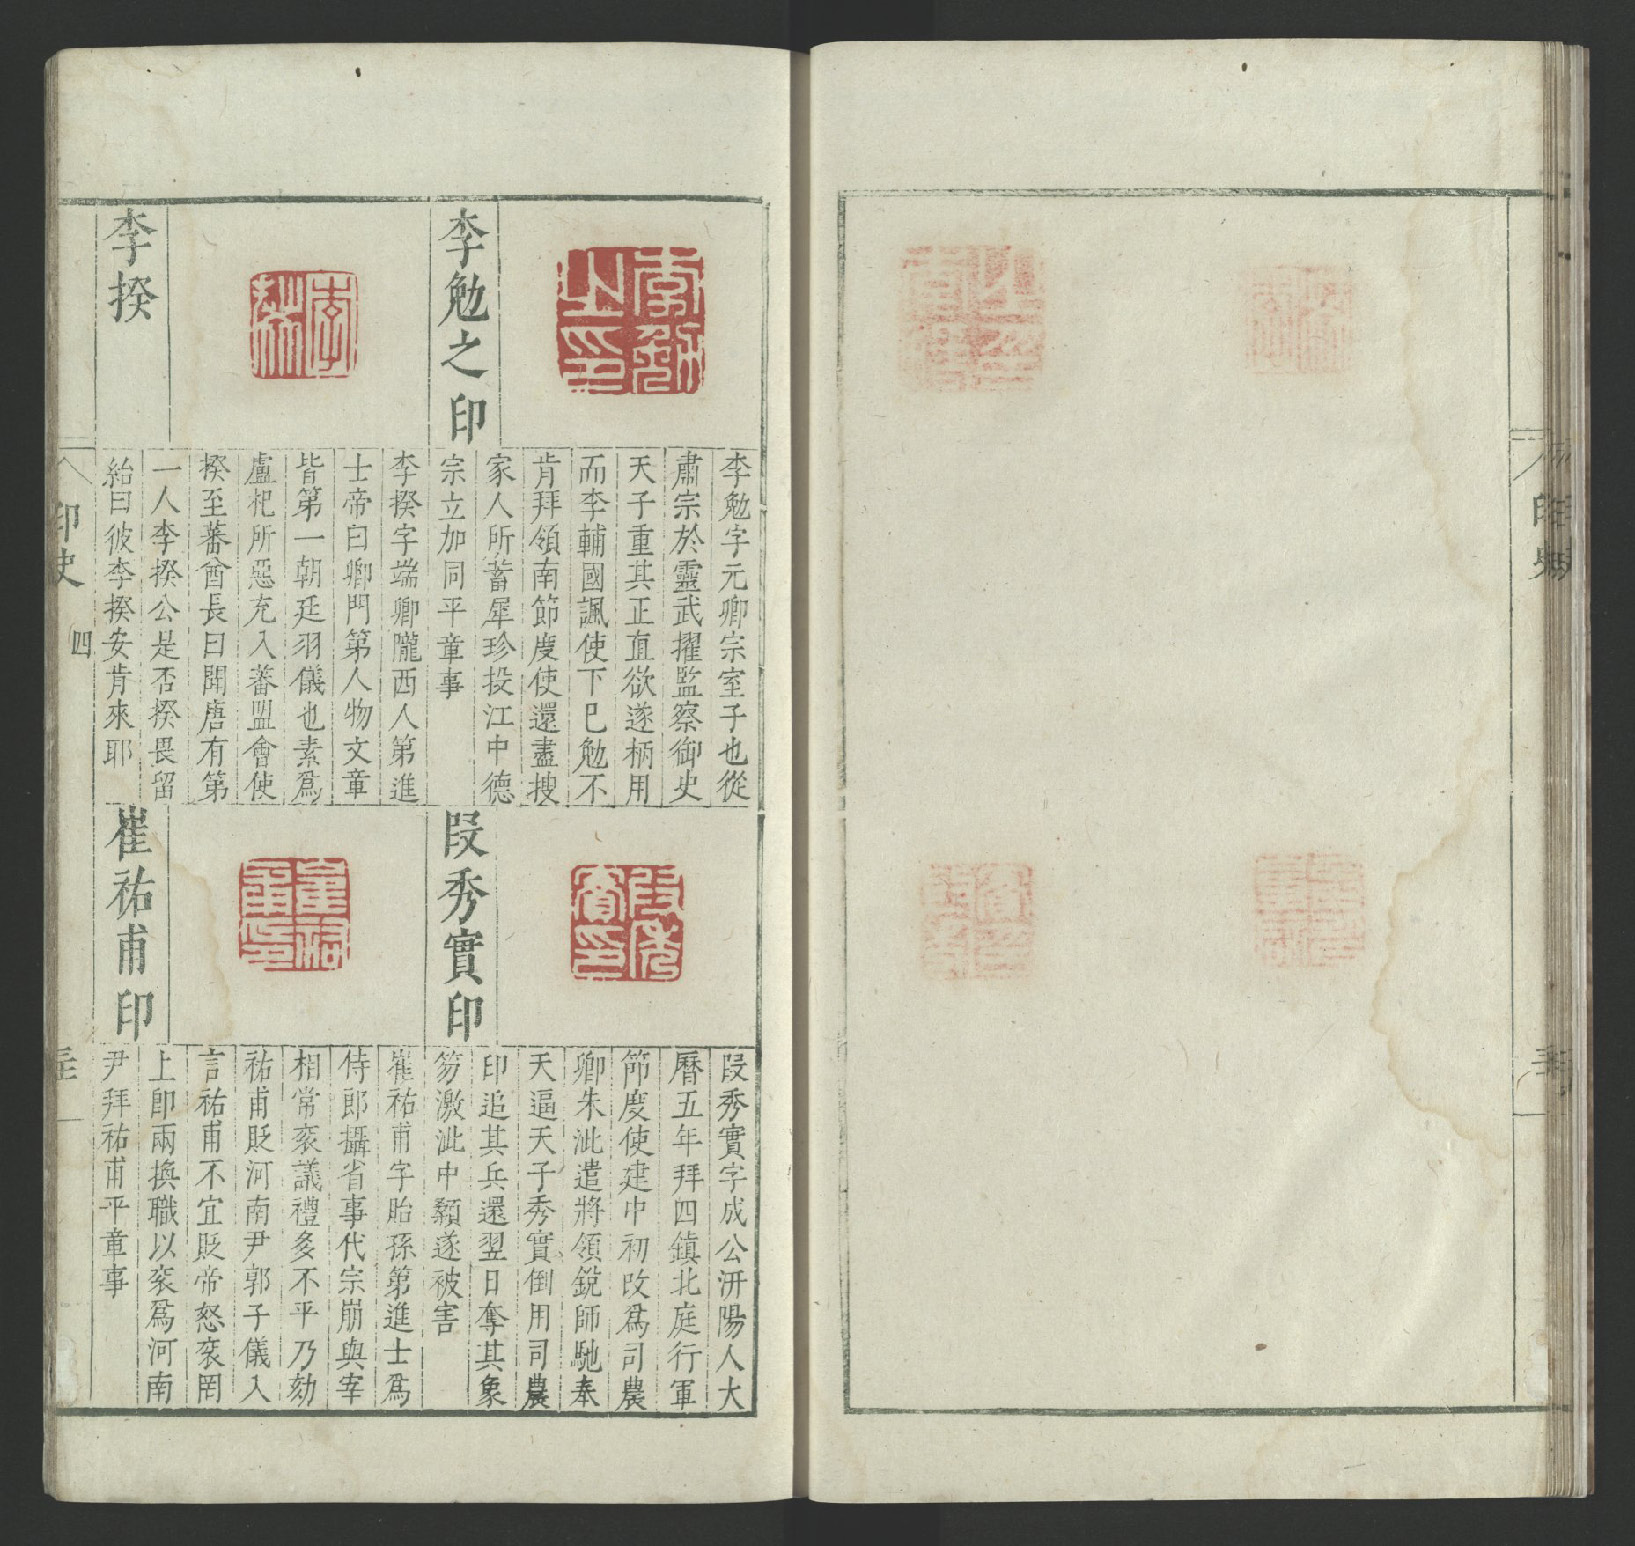 李勉之印
李勉字元卿宗室子也從
肅宗於靈武擢監察御史
天子重其正直欲遂柄用
而李輔國諷使下已勉不
肯拜領南節度使還盡搜
家人所蓄犀珍投江中德
宗立加同平章事
李揆
李揆字端卿隴西人第進
士帝曰卿門第人物文章
皆第一朝廷羽儀也素爲
盧杞所惡充入蕃盟會使
揆至蕃酋長曰聞唐有第
一人李揆公是否揆畏留
紿曰彼李揆安肯來耶
段秀實印
段秀實字成公汧陽人大
曆五年拜四鎮北庭行軍
節度使建中初改爲司農
卿朱泚遣將領銳師馳奉
天逼天子秀實倒用司農
印追其兵還翌日奪其象
笏激泚中顙遂被害
崔祐甫印
崔祐甫字貽孫第進士爲
侍郎攝省事代宗崩與宰
相常衮議禮多不平乃劾
祐甫貶河南尹郭子儀入
言祐甫不宜貶帝怒衮罔
上卽兩換職以衮爲河南
尹拜祐甫平章事
印史
四